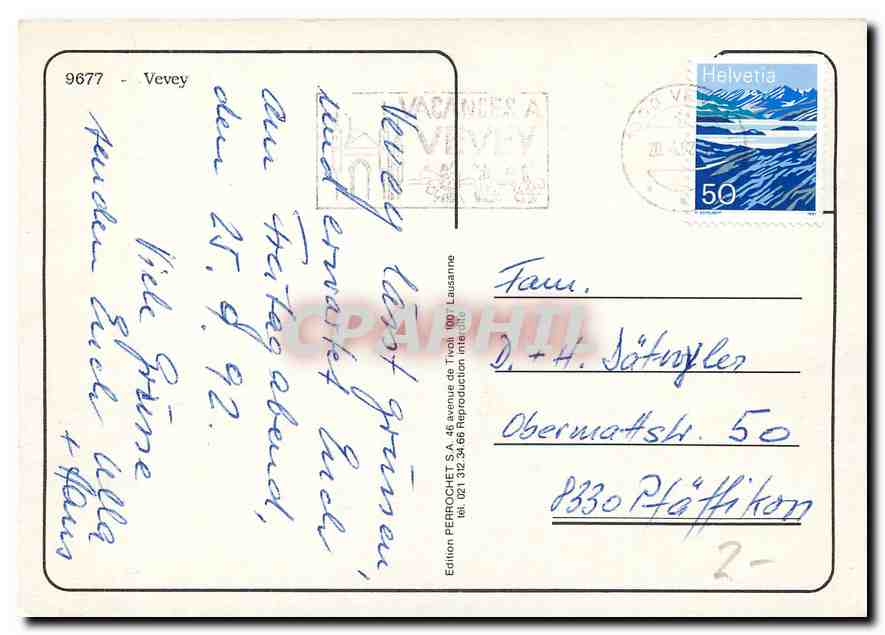 9677 - Vevey
Vevey lässt grüssen,
und erwartet Euch
am Freitag abend,
den 25. 9. 92.
Viele Grüsse
senden Euch Ulla
+ Hans
Edition PERROCHET S.A. 46 avenue de Tivoli 1007 Lausanne
tél. 021 312.34.66 Reproduction interdite
VACANCES A
VEVEY
Helvetia
50
1991
Fam.
D. + H. Dätwyler
Obermattstr. 50
8330 Pfäffikon
2-
CPAPHIL